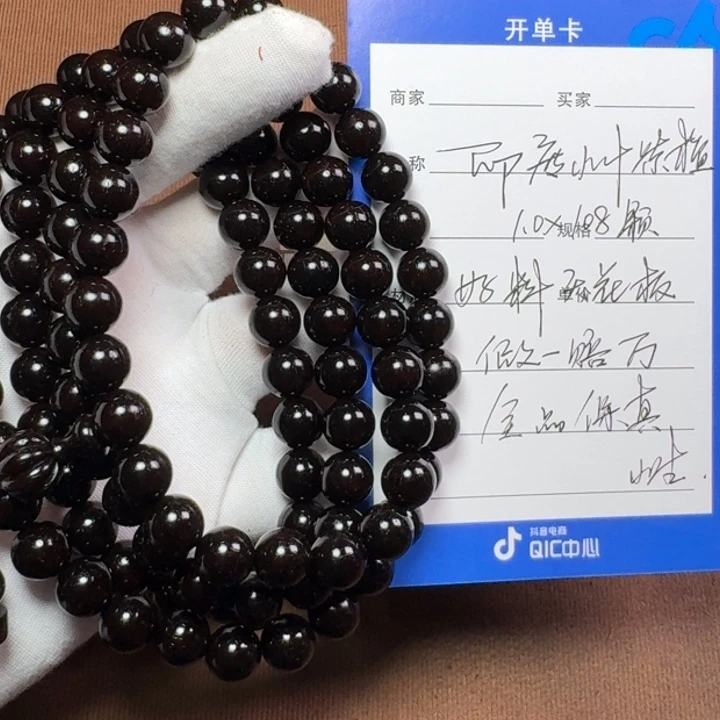 开单卡
商家 买家
称 印度小叶紫檀
1.0×规格108颗
好料 无花板
假一赔万
全品保真
抖音电商
QIC中心